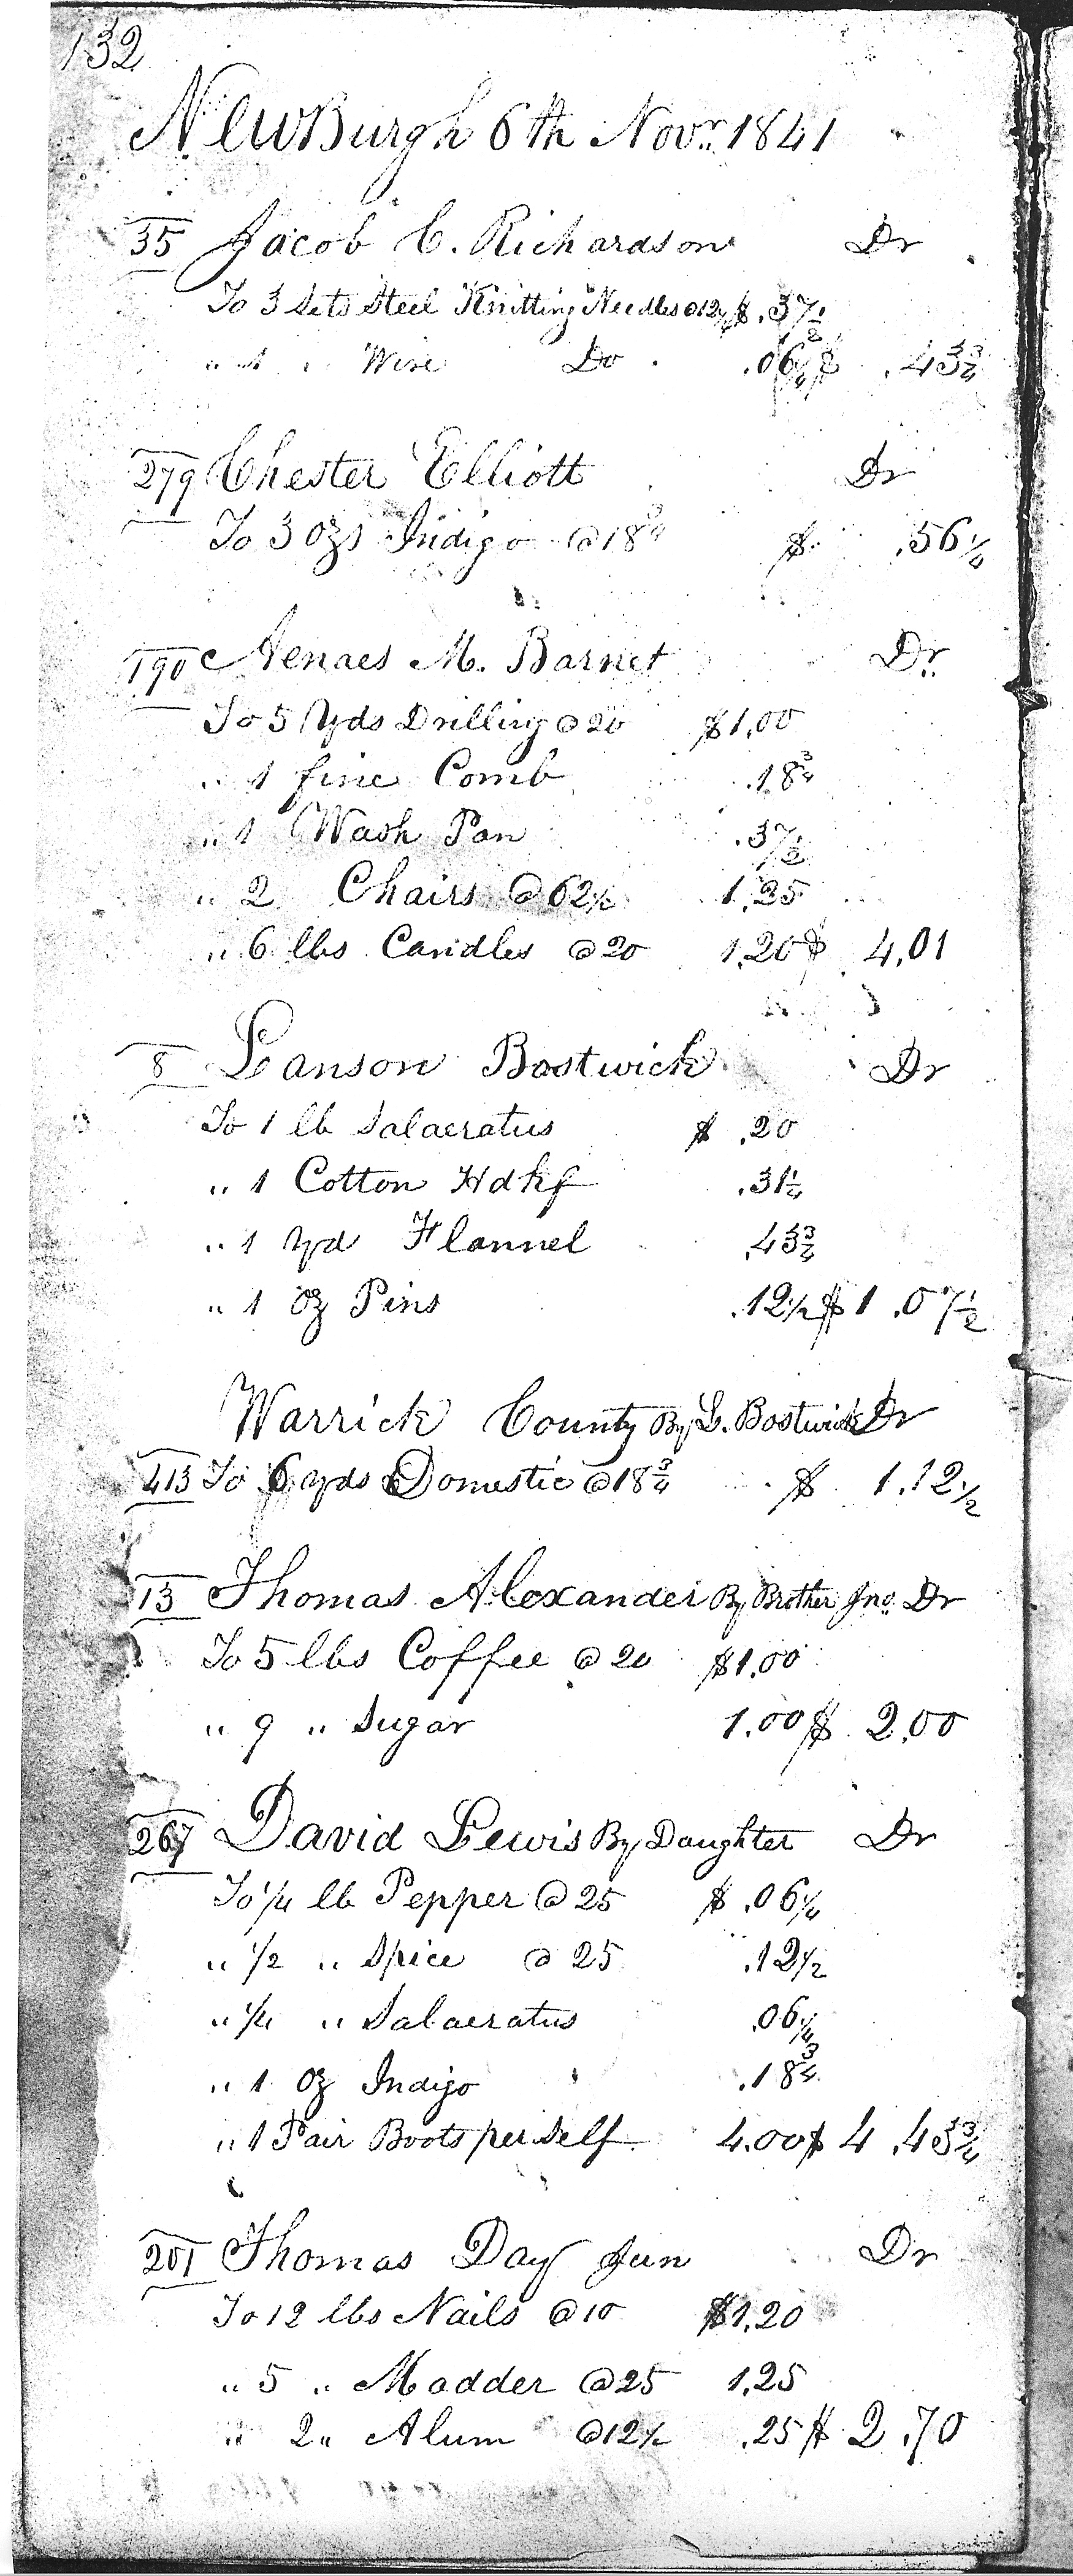 132
NewBurgh 6th Novr. 1841
35 Jacob C. Richardson Dr
To 3 Sets Steel Knitting Needles @12½ $ .37½
" 1 " Wire Do .06¼ $ .43¾
279 Chester Elliott Dr
To 3 Ozs Indigo @18¾ $ .56¼
190 Aenaes M. Barnet Dr.
To 5 Yds Drilling @20 $1.00
" 1 fine Comb .18¾
" 1 Wash Pan .37½
" 2 Chairs @62½ 1.25
" 6 lbs Candles @20 1.20 $ 4.01
8 Lanson Bostwick Dr
To 1 lb Salaeratus $ .20
" 1 Cotton Hdkf .31¼
" 1 Yd Flannel .43¾
" 1 Oz Pins .12½ $1.07½
Warrick County By L. Bostwick Dr
413 To 6 yds Domestic @18¾ $ 1.12½
13 Thomas Alexander By Brother Jno. Dr
To 5 lbs Coffee @20 $1.00
" 9 " Sugar 1.00 $ 2.00
267 David Lewis By Daughter Dr
To ¼ lb Pepper @25 $ .06¼
" ½ " Spice @25 .12½
" ¼ " Salaeratus .06¼
" 1 Oz Indigo .18¾
" 1 Pair Boots per Self 4.00 $ 4.43¾
201 Thomas Day Jun Dr
To 12 lbs Nails @10 $1.20
" 5 " Madder @25 1.25
" 2 " Alum @12½ .25 $ 2.70